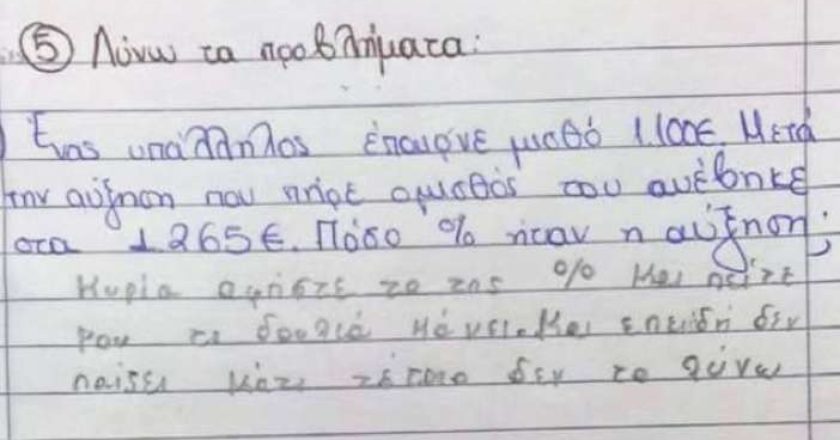 ⑤ Λύνω τα προβλήματα:
Ένας υπάλληλος έπαιρνε μισθό 1.100€. Μετά
την αύξηση που πήρε ο μισθός του ανέβηκε
στα 1.265€. Πόσο % ήταν η αύξηση;
Κυρία αφήστε το της % και πείτε
μου τι δουλιά κάνει. και επειδή δεν
παίζει κάτι τέτοιο δεν το λύνω